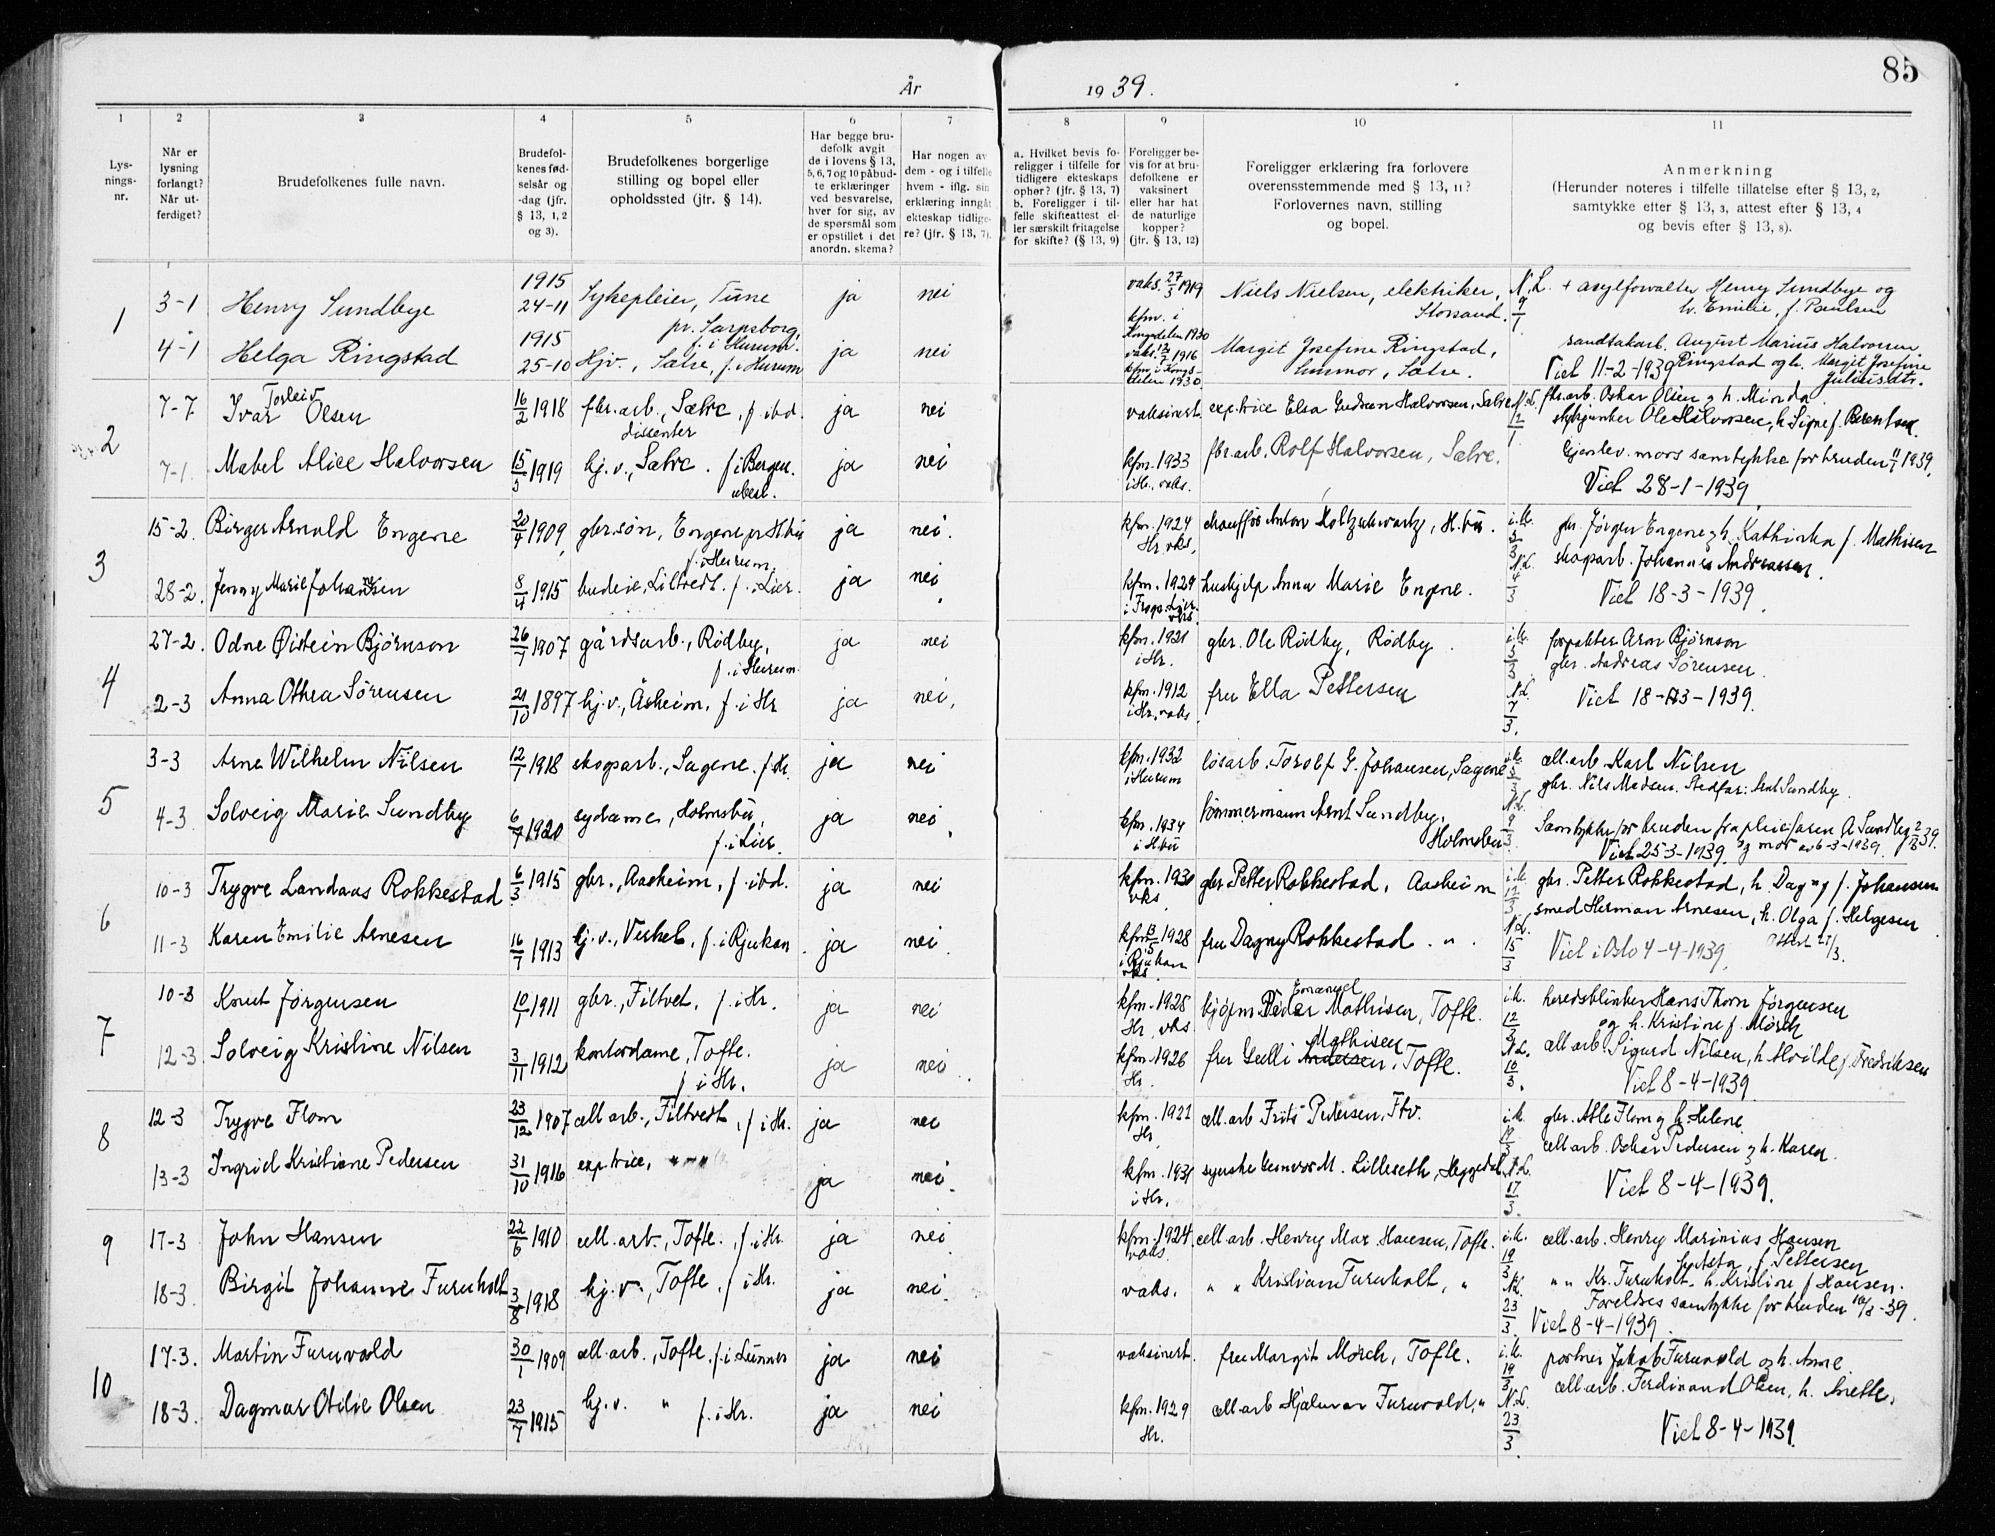 85
År 1939.
1 2 3 4 5 6 7 8 9 10 11
Lys-
nings-
nr.
Når er
lysning
forlangt?
Når ut-
ferdiget?
Brudefolkenes fulle navn.
Brudefol-
kenes fød-
selsår og
-dag (jfr.
§ 13, 1, 2
og 3).
Brudefolkenes borgerlige
stilling og bopel eller
opholdssted (jfr. § 14).
Har begge bru-
defolk avgit
de i lovens § 13,
5, 6, 7 og 10 påbud-
te erklæringer
ved besvarelse,
hver for sig, av
de spørsmål som
er opstillet i det
anordn. skema?
Har nogen av
dem - og i tilfelle
hvem - iflg. sin
erklæring inngåt
ekteskap tidlige-
re? (jfr. § 13, 7).
a. Hvilket bevis fo-
religger i tilfelle for
tidligere ekteskaps
ophør? (jfr. § 13, 7)
b. Foreligger i til-
felle skifteattest el-
ler særskilt fritagelse
for skifte? (§ 13, 9)
Foreligger be-
vis for at bru-
defolkene er
vaksinert
eller har hat
de naturlige
kopper?
(jfr. § 13, 12)
Foreligger erklæring fra forlovere
overensstemmende med § 13, 11?
Forlovernes navn, stilling
og bopel.
Anmerkning
(Herunder noteres i tilfelle tillatelse efter § 13, 2,
samtykke efter § 13, 3, attest efter § 13, 4
og bevis efter § 13, 8).
1 3-1 Henry Sundbye 1915 24-11 Sykepleier, Tune pr. Sarpsborg, f. i Hurum. ja nei vaks. 27/3 1919 kfm. i Kongsdelen 1930 Niels Nielsen, elektriker, Storsand. N.L. 9/1 + asylforvalter Henry Sundbye og h. Emilie, f. Paulsen
4-1 Helga Ringstad 1915 25-10 Hjv., Sætre, f. i Hurum ja nei vaks. 12/7 1916 kfm. i Kongsdelen 1930. Margit Josefine Ringstad, husmor, Sætre. sandtakarb. August Marius Halvorsen Ringstad og h. Margit Josefine Juliusdtr.
Viet 11-2-1939
2 7-7 Ivar Torleiv Olsen 16/2 1918 fbr.arb., Sætre, f. ibd. dissenter ja nei vaksinert. exp.trice Elsa Gudrun Halvorsen, Sætre N.L. 12/1. fbr.arb. Oskar Olsen og h. Minda.
7-1. Mabel Alice Halvorsen 15/5 1919 hj.v., Sætre. f. i Bergen. ja nei kfm. 1933 i Hr., vaks. fbr.arb. Rolf Halvorsen, Sætre. Ole Halvorsen, h. Signe f. Berentsen.
mors samtykke for bruden 11/1 1939.
Viet 28-1-1939
3 15-2. Birger Arnold Engene 20/4 1909, gbr.søn, Engene pr. H.bu f. i Hurum. ja nei. kfm. 1924 Hr. vks. chauffør Anton Holtzschwartz, H.bu. i.k. 3/3 gbr. Jørgen Engene og h. Kathinka f. Mathisen
28-2. Jenny Marie Johansen 8/4 1915 budeie, Liltvedt. f. i Lier. ja nei. kfm. 1929 i Frogn. Lier. vks hushjelp Anna Marie Engene. N.L. 4/3 skogarb. Johannes Andreassen.
Viet 18-3-1939.
4 27-2. Odne Øistein Bjørnson 26/7 1907 gårdsarb., Rødby, f. i Hurum. ja nei kfm. 1921 i Hr. gbr. Ole Rødby, Rødby. i.k. 3/3 forpakter Arm Bjørnson
2-3 Anna Othea Sørensen 21/10 1897 hj.v., Åsheim, f. i Hr ja nei. kfm. 1912 i Hr., vaks. fru Ella Pettersen N.L. 7/3. gbr. Andreas Sørensen.
Viet 18-3-1939.
5 3-3 Arne Wilhelm Nilsen 12/1 1918 skogsarb., Sagene. f. Hr. ja nei kfm. 1932 i Hurum løsarb. Torolf G. Johansen, Sagene i.k. 3/3 cell.arb. Karl Nilsen
4-3. Solveig Marie Sundby 6/7 1920 sydame, Holmsbu, f. i Lier. ja nei. kfm. 1934 i H.bu tømmermann Arnt Sundby, Holmsbu N.L. 9/3. gbr. Nils Madsen. Stedfar: Arnt Sundby.
Samtykke for bruden fra pleiefaren A. Sundby 2/3 39. og mor av 6-3-1939.
Viet 25-3-1939.
6 10-3 Trygve Landaas Rokkestad 6/3 1915 gbr., Aasheim, f. ibd. ja nei kfm. 1930 vks gbr. Petter Rokkestad, Aasheim i.k. 12/3 gbr. Petter Rokkestad, h. Dagny f. Johansen
11-3 Karen Emilie Arnesen 16/7 1913 hj.v., Virket, f. i Rjukan. ja nei. kfm. 13/5 1928 i Rjukan vks fru Dagny Rokkestad. " N.L. 15/3 smed Herman Arnesen, h. Olga f. Helgesen
Viet i Oslo 4-4-1939.
7 10-3 Knut Jørgensen 10/1 1911 gbr., Filtvet, f. i Hr. ja nei kfm. 1925 Hr. vks kjøpm. Peder Emanuel Mathisen, Tofte. i.k. 12/3 heredsblinker Hans Thorn Jørgensen og h. Kristine f. Mørch
12-3. Solveig Kristine Nilsen 3/11 1912 kontordame, Tofte. f. i Hr. ja nei. kfm. 1926 Hr. fru Gulli Mathisen, Tofte. N.L. 16/3. cell.arb. Sigurd Nilsen, h. Hvilde f. Fredriksen
Viet 8-4-1939.
8 12-3 Trygve Flom 23/12 1907 cell.arb., Filtvedt, f. i Hr. ja nei kfm. 1922 Hr. cell.arb. Frits Pedersen, Ftv. i.k. 14/3 gbr. Atle Flom og h. Helene.
13-3 Ingrid Kristiane Pedersen 31/10 1916 exp.trice, " " " ja nei. kfm. 1931 i Hr. Lilleseth, Heggedal. N.L. 17/3. cell.arb. Oskar Pedersen og h. Karen.
Viet 8-4-1939.
9 17-3 John Hansen 22/6 1910 cell.arb., Tofte. f. i Hr. ja nei kfm. 1924. vaks. cell.arb. Henry Mar. Hansen, Tofte. i.k. 19/3 cell.arb. Henry Marinius Hansen og Asta, f. Pettersen
18-3. Birgit Johanne Furuholt 3/8 1918 hj.v., Tofte, f. i Hr. ja nei. vaks. " " Kristian Furuholt, " N.L. 23/3. " " Kr. Furuholt. h. Kristine f. Hansen.
Foreldres samtykke for bruden 18/3-39.
Viet 8-4-1939.
10 17-3. Martin Furuvald 30/1 1909 cell.arb., Tofte. f. i Lunner ja nei vaksinert. fru Margit Mørch, Tofte. i.k. 19/3 portner Jakob Furuvald og h. Anne.
18-3. Dagmar Otilie Olsen 23/7 1915 hj.v. " f. i Hr. ja nei kfm. 1929 Hr. cell.arb. Hjalmar Furuvald, " N.L. 23/3 cell.arb. Ferdinand Olsen, h. Anette.
Viet 8-4-1939.